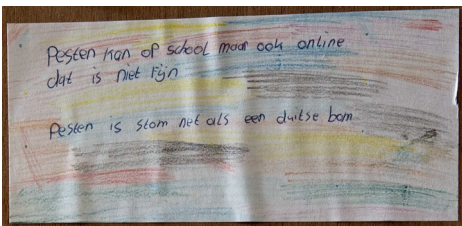 Pesten kan op school maar ook online
dat is niet fijn
Pesten is stom net als een duitse bom